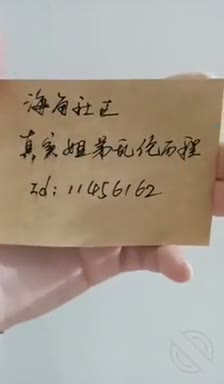 海角社区
真实姐弟乱伦历程
Id：11456162